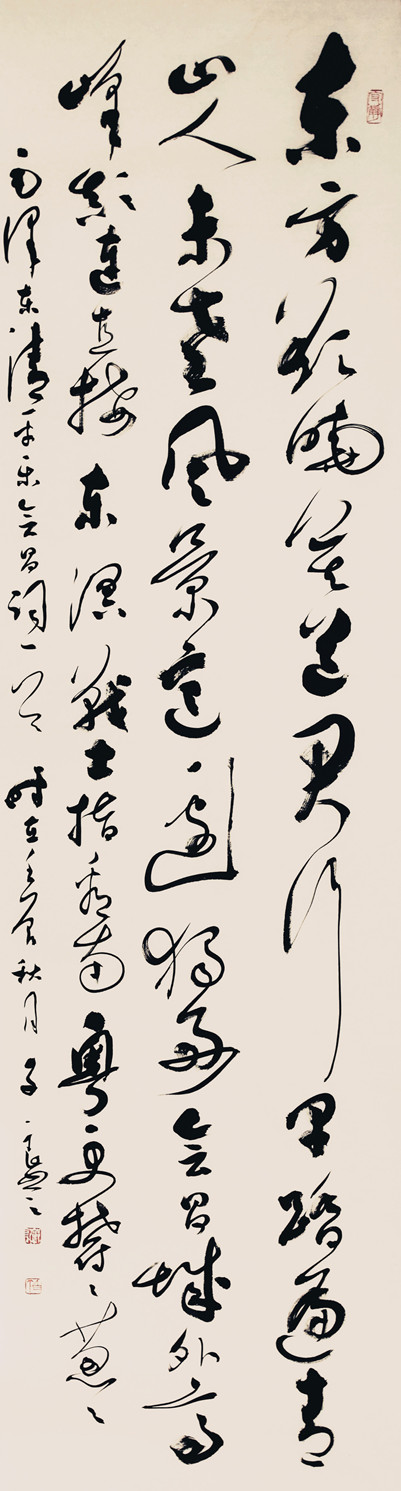 东方欲晓莫道君行早踏遍青
山人未老风景这边独好会昌城外高
峰颠连直接东溟战士指看南粤更郁々葱々
毛泽东清平乐会昌词一首 时在秋月